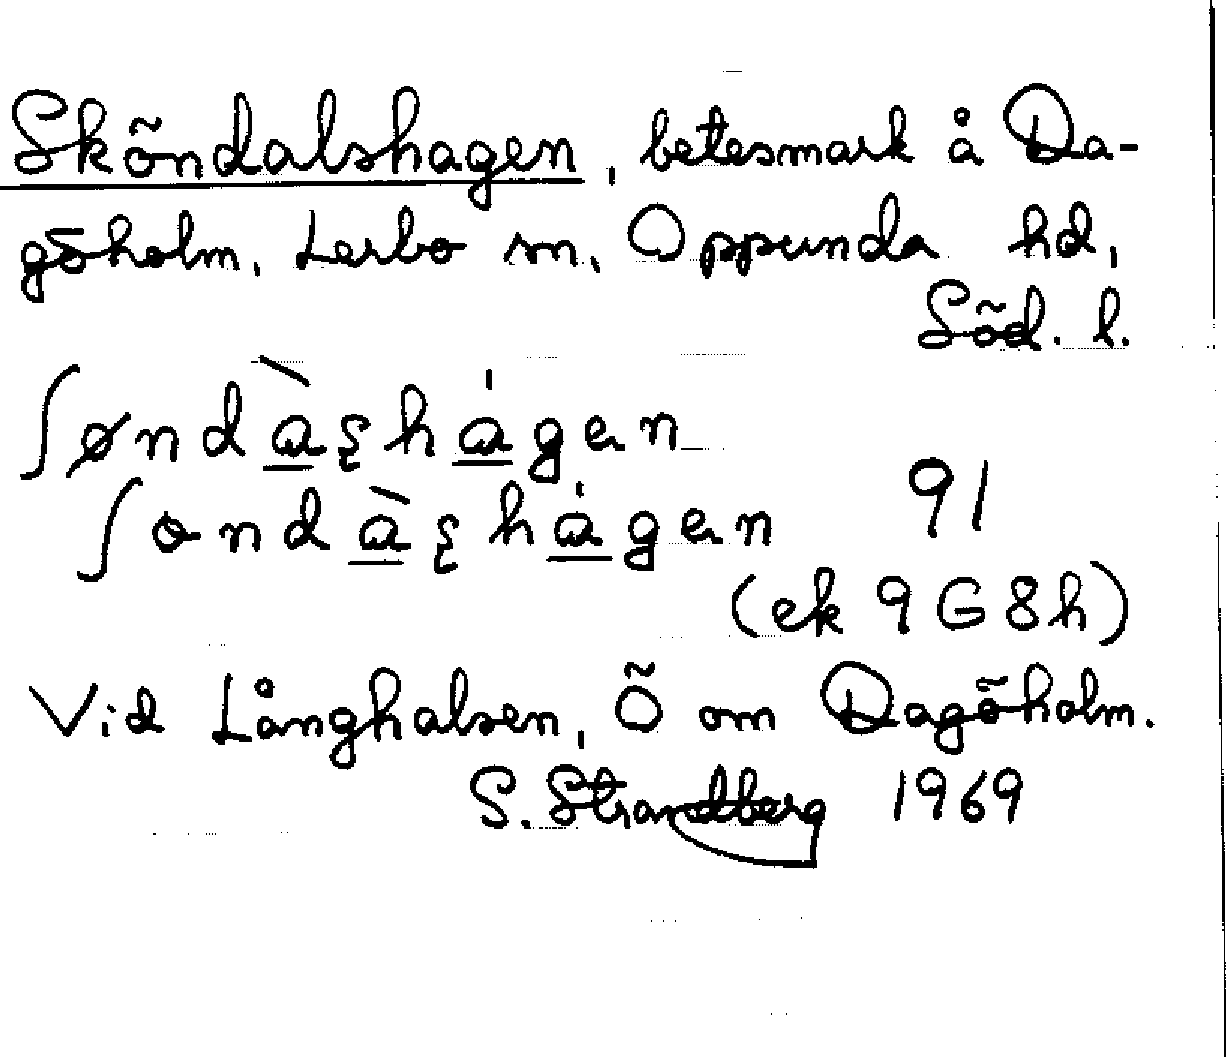 Sköndalshagen, betesmark å Da-
göholm, Lerbo sn, Oppunda hd,
Söd. l.
ʃøndàʂhágen
ʃɵndàʂhágen 91
(ek 9G8h)
Vid Långhalsen, Ö om Dagöholm.
S. Strandberg 1969